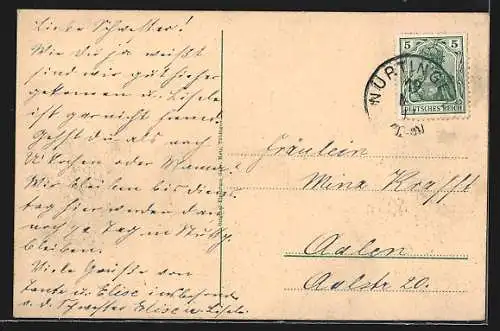 Liebe Schwester!
Wie Du ja weißt
sind wir gut hieher
gekommen u. Lisele
ist gar nicht
Gehst du als nach
U'kochen oder Mama?
Wir bleiben bis Diens
tag hier werden dan
noch Tag in Stuttg.
bleiben.
Viele Grüße von
Tante u. Elise insbesond.
v. d. Schwester Elise u. Lisele.
5 5
DEUTSCHES REICH
NÜRTING
Fräulein
Mina Krafft
Aalen
Aalstr 20.